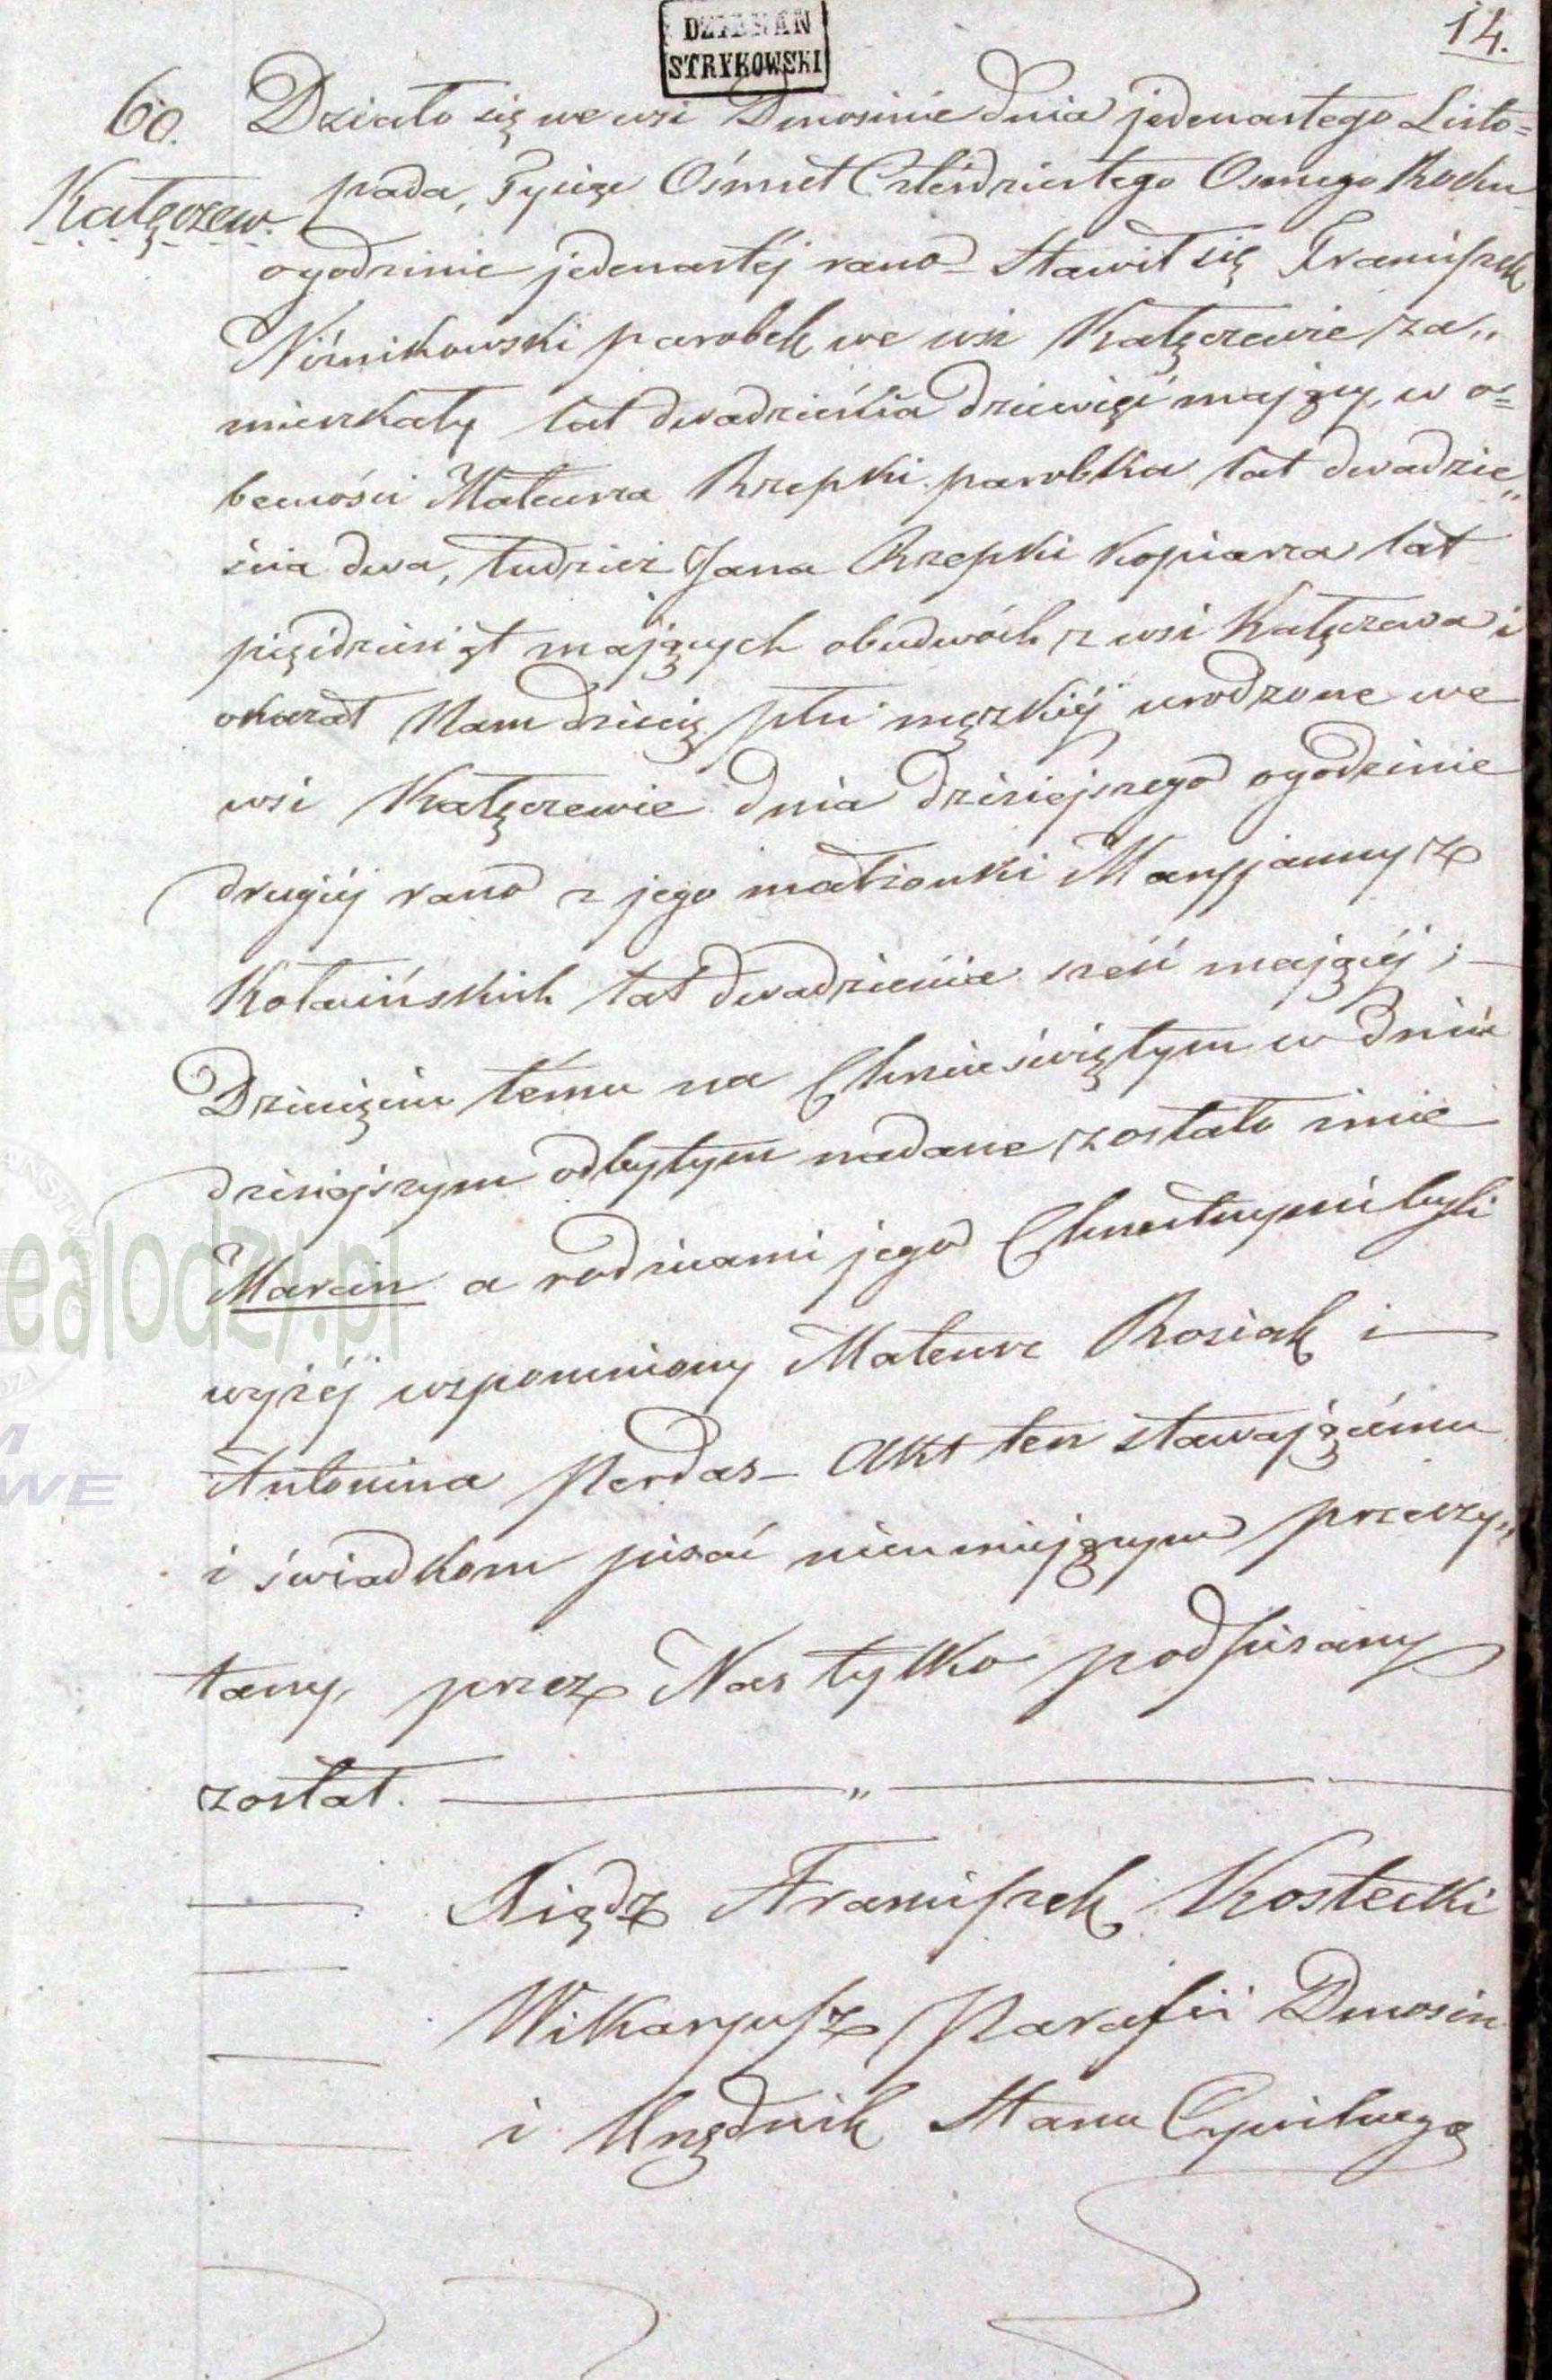 DZIEKAN
STRYKOWSKI
14.
60. Działo się we wsi Dmosinie dnia jedenastego Listo=
Kałęczew. pada, Tysiąc Ośmset Czterdziestego Osmego Roku
o godzinie jedenastéj rano – Stawił się Franciszek
parobek we wsi Kałęczewie za„
mieszkały lat dwadzieścia dziewięć mający, w o=
becności Mateusza Rzepki parobka lat dwadzie„
ścia dwa, tudzież Jana Rzepki kopiarza lat
pięćdziesiąt mających obudwóch z wsi Kałęczewa i
okazał Nam dziecię płci męzkiéj urodzone we
wsi Kałęczewie dnia dzisiejszego o godzinie
drugiéj rano z jego małżonki Maryjanny z
lat dwadzieścia sześć mającéj; –
Dziecięciu temu na Chrzcie świętym w dniu
dzisiejszym odbytym nadane zostało imie
Marcin a rodzicami jego Chrzestnymi byli
wyżéj wspomniony Mateusz Rosiak i –
Antonina Perdas – Akt ten stawającému
i świadkom pisać nieumiejącym przeczy„
tany, przez Nas tylko podpisany
został. – „ –
Xiądz Franciszek Kostecki
Wikaryusz Parafii Dmosin
i Urzędnik Stanu Cywilnego
ealodzy.pl
M
WE